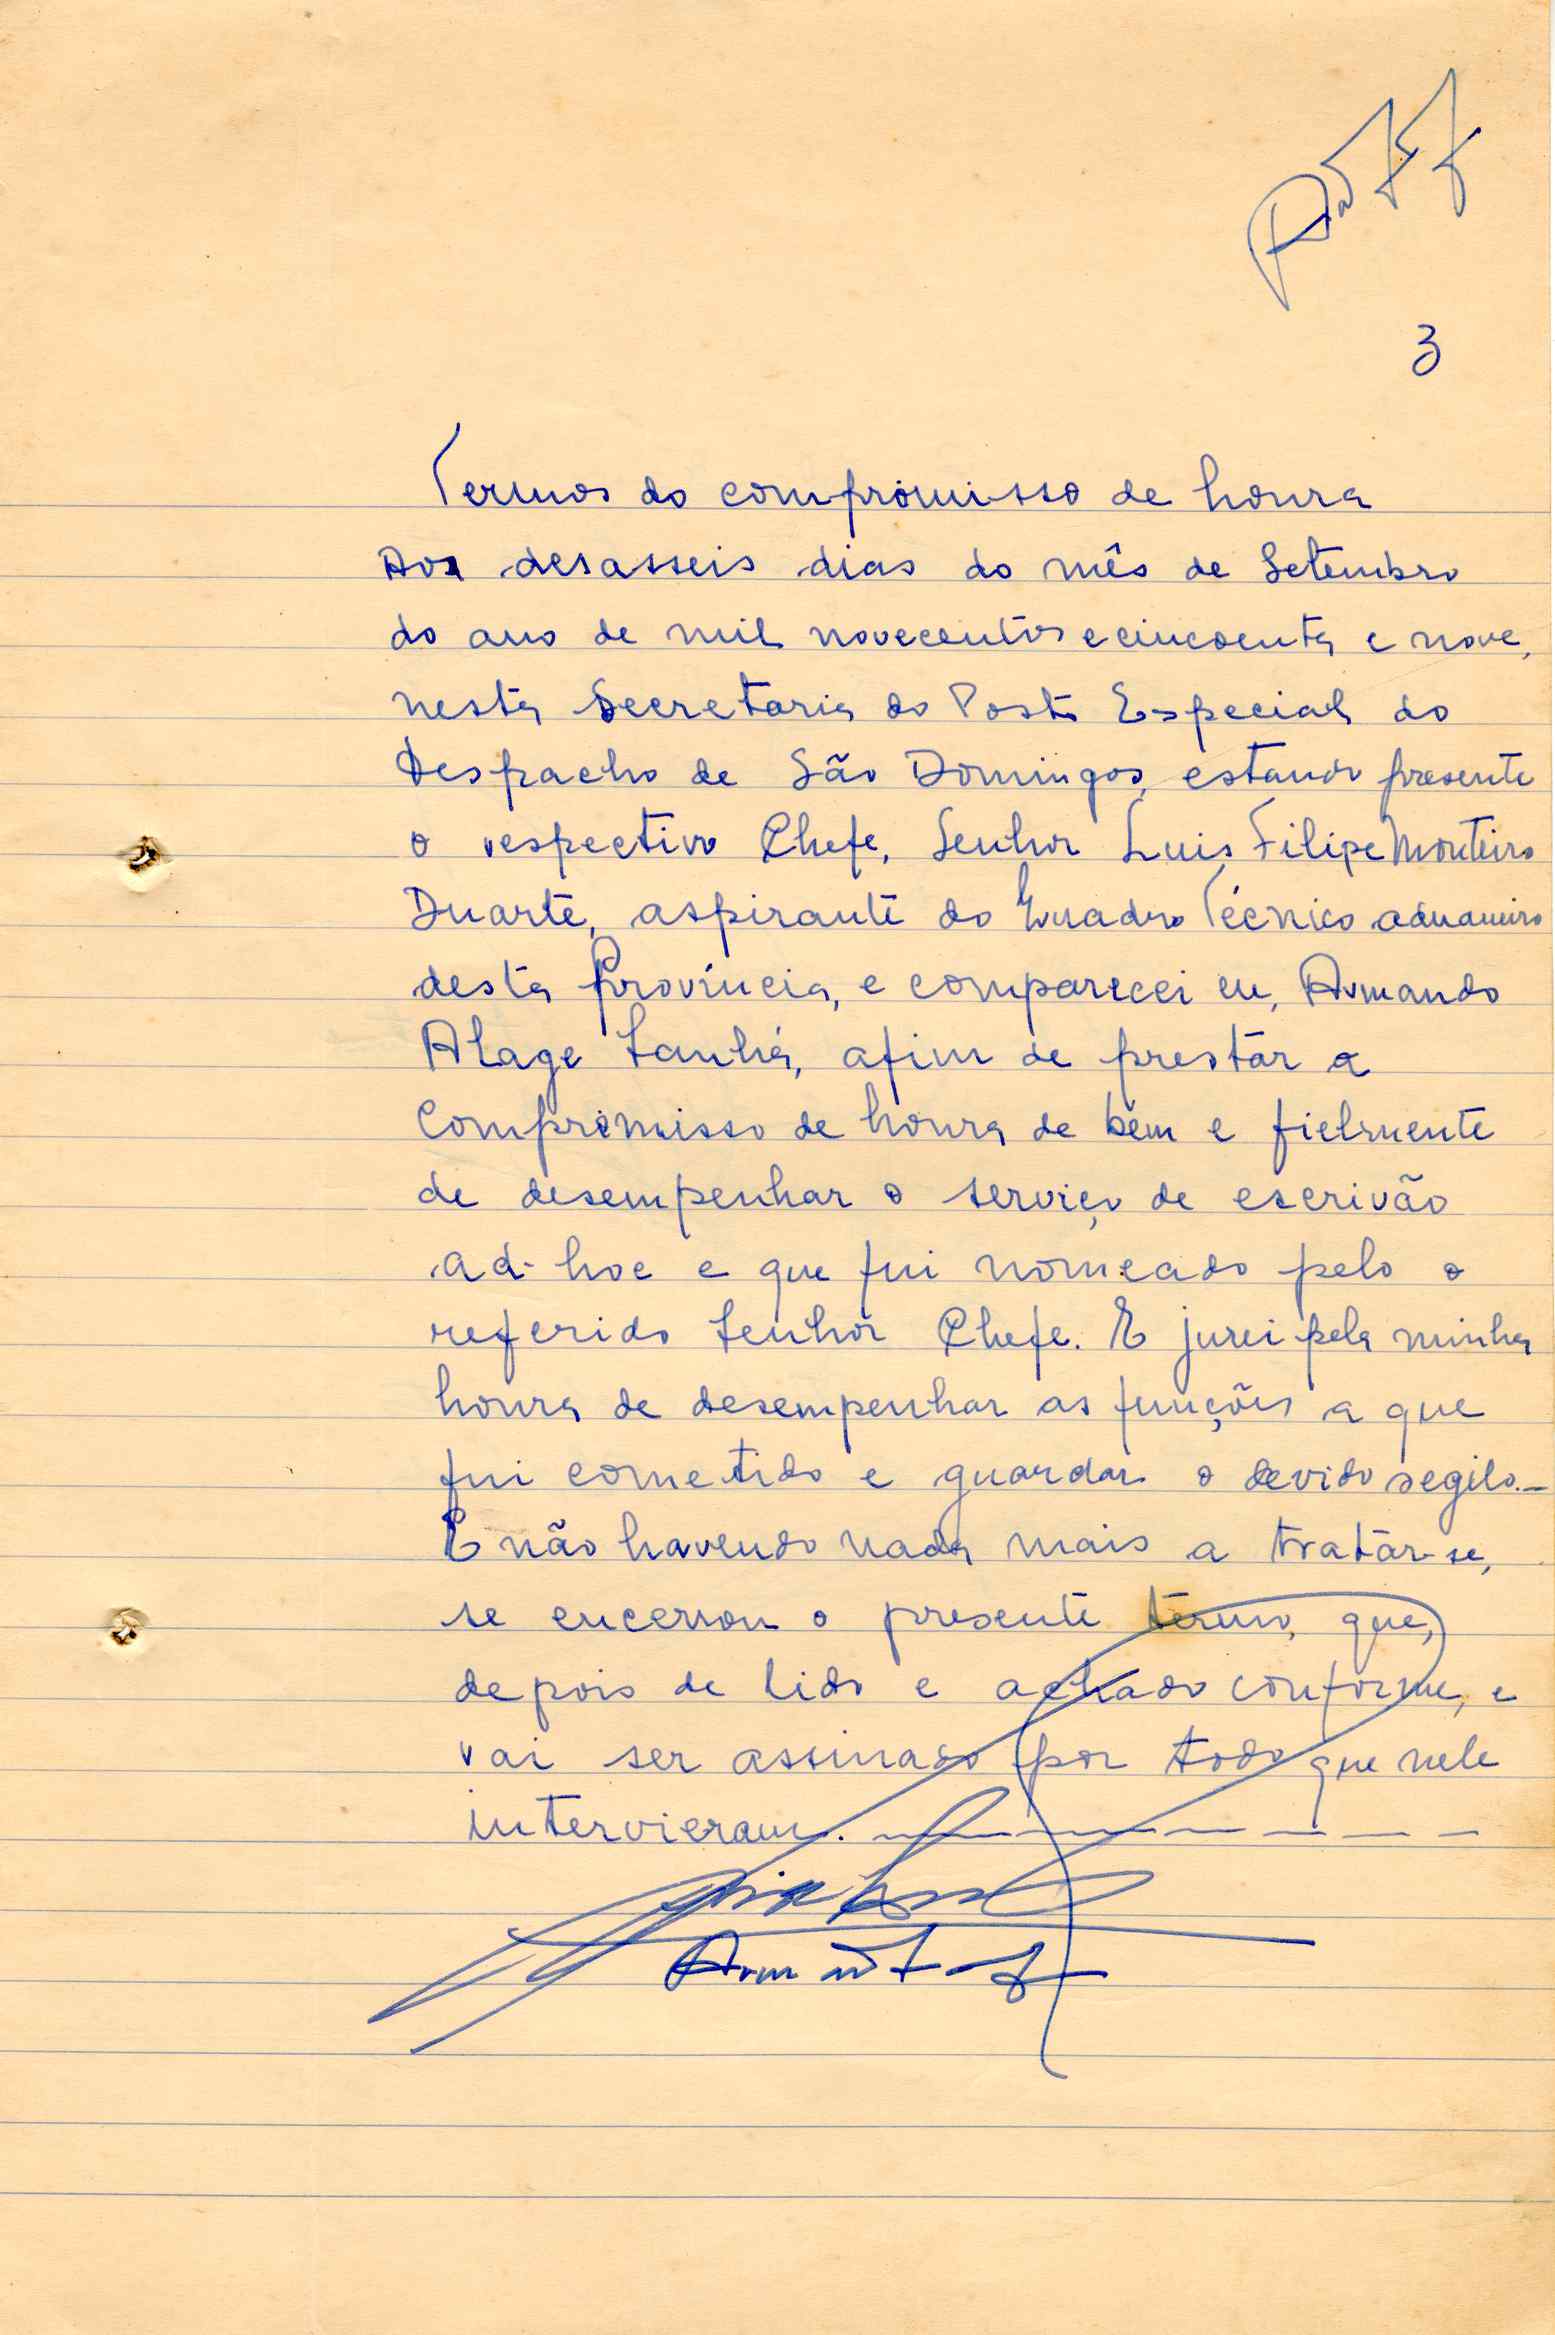 3
Termos do compromisso de honra
Aos desasseis dias do mês de Setembro
do ano de mil novecentos e cincoenta e nove,
nesta Secretaria do Posto Especial do
Despacho de São Domingos, estando presente
o respectivo Chefe, Senhor Luis Filipe Monteiro
Duarte, aspirante do Quadro Técnico aduaneiro
desta Província, e comparecei eu, Armando
Alage Sanhá, afim de prestar a
Compromisso de honra de bem e fielmente
de desempenhar o serviço de escrivão
ad-hoc e que fui nomeado pelo o
referido Senhor Chefe. E jurei pela minha
honra de desempenhar as funções a que
fui cometido e guardar o devido segilo.-
E não havendo nada mais a tratar-se,
se encerrou o presente termo, que,
depois de lido e achado conforme, e
vai ser assinado por todo que nele
intervieram.